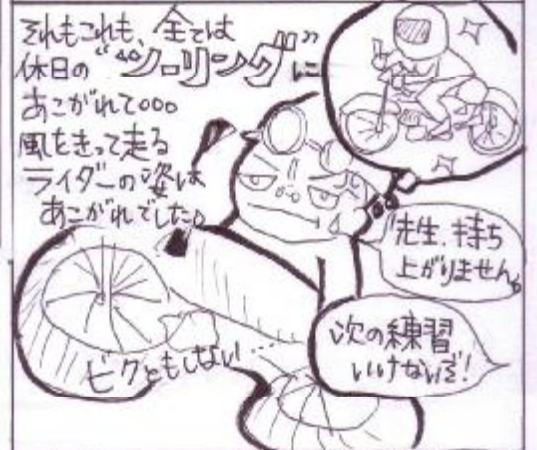 それもこれも、全ては
休日の"ツーリング"に
あこがれて。。。
風をきって走る
ライダーの姿は
あこがれでした。
先生、持ち
上がりません。
次の練習
いけないぞ!
ビクともしない…